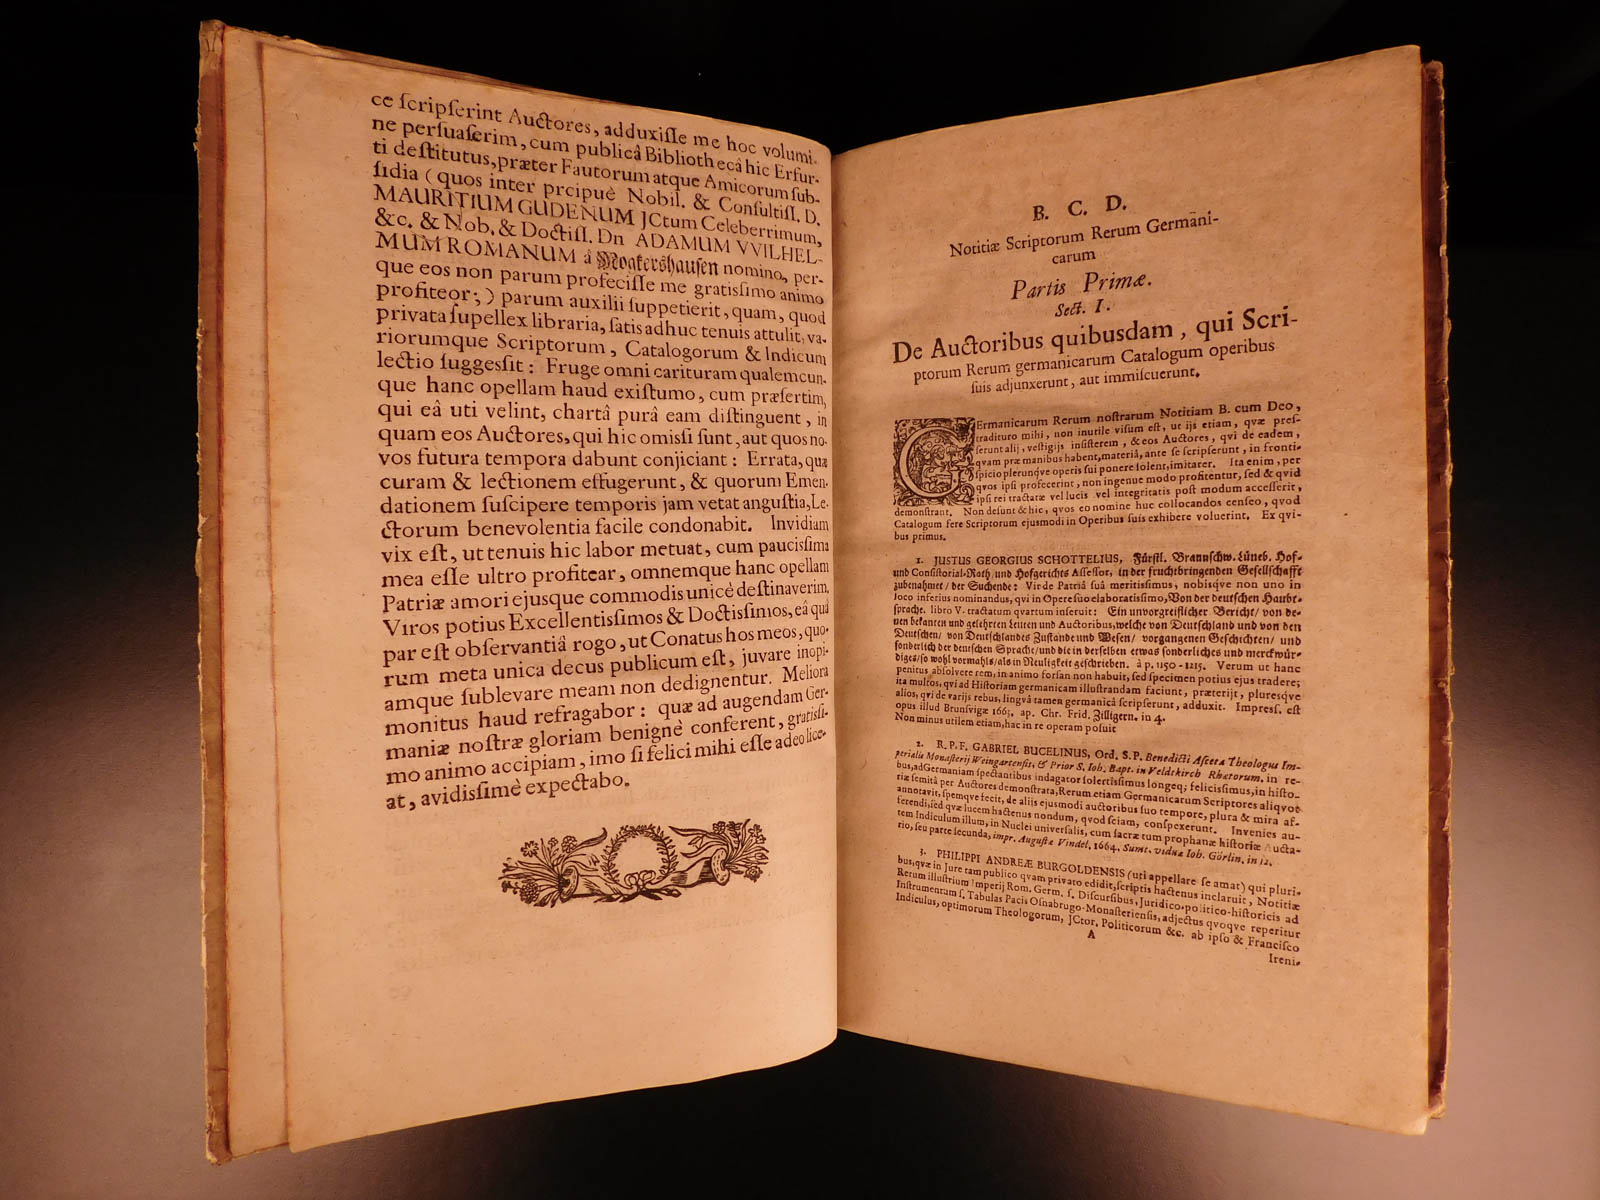 ce ſcripſerint Auctores, adduxiſſe me hoc volumi-
ne perſuaſerim, cum publicâ Bibliothecâ hic Erfur-
ti deſtitutus, præter Fautorum atque Amicorum ſub-
ſidia (quos inter prcipuè Nobil. & Conſultiſſ. D.
MAURITIUM GUDENUM JCtum Celeberrimum,
&c. & Nob. & Doctiſſ. Dn ADAMUM VVILHEL-
MUM ROMANUM â nomino, per-
que eos non parum profeciſſe me gratiſſimo animo
profiteor;) parum auxilii ſuppetierit, quam, quod
privata ſupellex libraria, ſatis adhuc tenuis attulit, va-
riorumque Scriptorum, Catalogorum & Indicum
lectio ſuggeſſit: Fruge omni carituram qualemcun-
que hanc opellam haud exiſtumo, cum præſertim,
qui eâ uti velint, chartâ purâ eam diſtinguent, in
quam eos Auctores, qui hic omiſſi ſunt, aut quos no-
vos futura tempora dabunt conjiciant: Errata, quæ
curam & lectionem effugerunt, & quorum Emen-
dationem ſuſcipere temporis jam vetat anguſtia, Le-
ctorum benevolentia facile condonabit. Invidiam
vix eſt, ut tenuis hic labor metuat, cum pauciſſima
mea eſſe ultro profitear, omnemque hanc opellam
Patriæ amori ejusque commodis unicè deſtinaverim,
Viros potius Excellentiſſimos & Doctiſſimos, eâ quâ
par eſt obſervantiâ rogo, ut Conatus hos meos, quo-
rum meta unica decus publicum eſt, juvare inopi-
amque ſublevare meam non dedignentur. Meliora
monitus haud refragabor: quæ ad augendam Ger-
maniæ noſtræ gloriam benignè conferent, gratiſſi-
mo animo accipiam, imo ſi felici mihi eſſe adeo lice-
at, avidiſſimè expectabo.
B. C. D.
Notitiæ Scriptorum Rerum Germani-
carum
Partis Primæ.
Sect. I.
De Auctoribus quibusdam, qui Scri-
ptorum Rerum germanicarum Catalogum operibus
ſuis adjunxerunt, aut immiſcuerunt.
GErmanicarum Rerum noſtrarum Notitiam B. cum Deo,
tradituro mihi, non inutile viſum eſt, ut ijs etiam, quæ preſ-
ſerunt alij, veſtigijs inſiſterem, & eos Auctores, qvi de eadem,
qvam præ manibus habent, materiâ, ante ſe ſcripſerunt, in fronti-
ſpicio plerunqve operis ſui ponere ſolent, imitarer. Ita enim, per
qvos ipſi profecerint, non ingenue modo profitentur, ſed & qvid
ipſi rei tractatæ vel lucis vel integritatis poſt modum acceſſerit,
demonſtrant. Non deſunt & hic, qvos eo nomine huc collocandos cenſeo, qvod
Catalogum fere Scriptorum ejusmodi in Operibus ſuis exhibere voluerint. Ex qvi-
bus primus.
1. JUSTUS GEORGIUS SCHOTTELIUS, Fürſtl. Braunſchw. Lüneb. Hof-
und Conſiſtorial-Rath/ und Hofgerichts Aſſeſſor, in der fruchtbringenden Geſellſchafft
zubenahmet/ der Suchende: Vir de Patriâ ſuâ meritiſſimus, nobisqve non uno in
loco inferius nominandus, qvi in Opere ſuo elaboratiſſimo, Von der deutſchen Haubt-
ſprache. libro V. tractatum qvartum inſeruit: Ein unvorgreiflicher Bericht/ von de-
nen bekanten und gelehrten Leuten und Auctoribus, welche von Deutſchland und von den
Deutſchen/ von Deutſchlandes Zuſtande und Weſen/ vorgangenen Geſchichten/ und
ſonderlich der deutſchen Sprache/ und die in derſelben etwas ſonderliches und merckwür-
diges/ ſo wohl vormahls/ als in Neuligkeit geſchrieben. à p. 1150-1215. Verum ut hanc
penitus abſolvere rem, in animo forſan non habuit, ſed specimen potius ejus tradere;
ita multos, qvi ad Hiſtoriam germanicam illuſtrandam faciunt, præterijt, pluresqve
alios, qvi de varijs rebus, lingvâ tamen germanicâ ſcripſerunt, adduxit. Impreſſ. eſt
opus illud Brunſvigæ 1663. ap. Chr. Frid. Zilligern. in 4.
Non minus utilem etiam, hac in re operam poſuit
2. R. P. F. GABRIEL BUCELINUS, Ord. S. P. Benedicti Aſceta Theologus Im-
perialis Monaſterij Weingartenſis, & Prior S. Ioh. Bapt. in Veldkirch Rhætorum. in re-
bus, ad Germaniam ſpectantibus indagator ſolertiſſimus longeq; feliciſſimus, in hiſto-
riæ ſemitâ per Auctores demonſtrata, Rerum etiam Germanicarum Scriptores aliqvot
annotavit, ſpemqve fecit, de alijs ejusmodi auctoribus ſuo tempore, plura & mira af-
ferendi, ſed quæ lucem hactenus nondum, qvod ſciam, conſpexerunt. Invenies au-
tem Indiculum illum, in Nuclei universalis, cum ſacræ tum prophanæ hiſtoriæ Aucta-
rio, ſeu parte ſecunda, impr. Auguſtæ Vindel. 1664. Sumt. viduæ Ioh. Görlin. in 12.
3. PHILIPPI ANDREÆ BURGOLDENSIS (uti appellare ſe amat) qui pluri-
bus, qvæ in Jure tam publico qvam privato edidit, ſcriptis hactenus inclaruit, Notitiæ
Rerum illuſtrium Imperij Rom. Germ. ſ. Diſcurſibus, Juridico-politico-hiſtoricis ad
Inſtrumentum ſ. Tabulas Pacis Oſnabrugo-Monaſterienſis, adjectus qvoqve reperitur
Indiculus, optimorum Theologorum, JCtor. Politicorum &c. ab ipſo & Franciſco
A
Ireni-